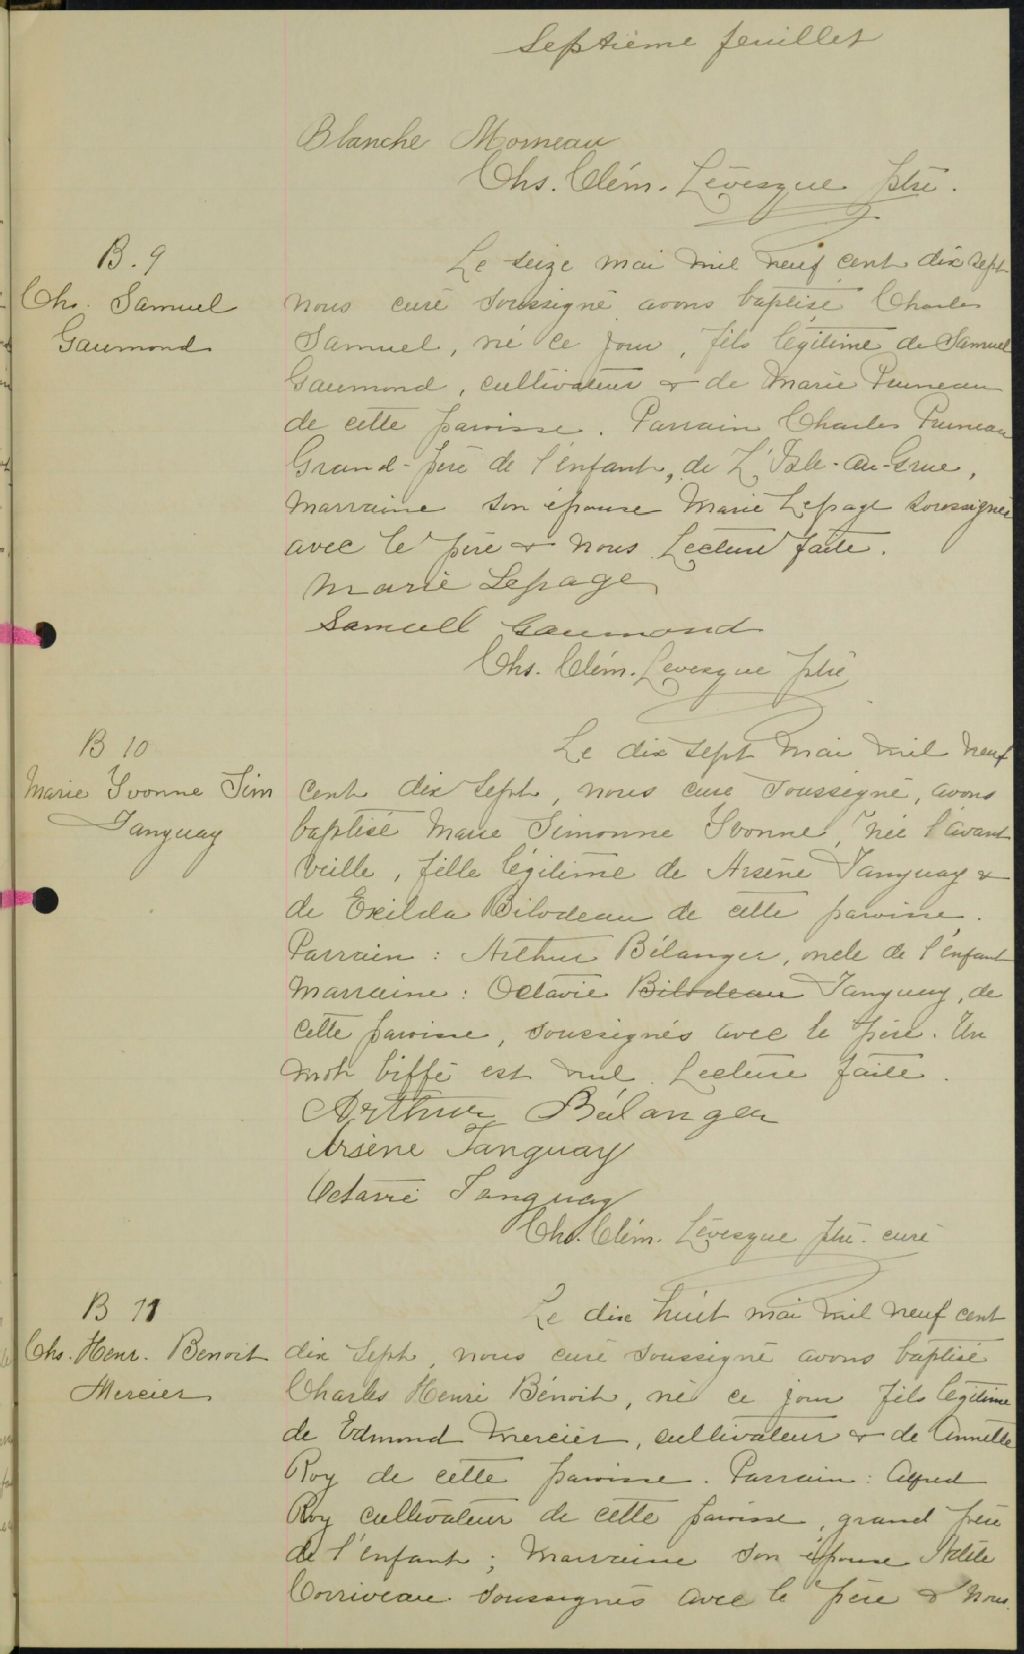 Septième feuillet
Blanche Morneau
Chs. Clém. Lévesque ptre.
B. 9
Chs. Samuel
Gaumond
Le seize mai mil neuf cent dix sept
nous curé soussigné avons baptisé Charles
Samuel, né ce jour, fils légitime de Samuel
Gaumond, cultivateur & de Marie Pruneau
de cette paroisse. Parrain Charles Pruneau
Grand-père de l'enfant, de L'Isle-au-Grue,
marraine son épouse Marie Lepage soussignée
avec le père & nous. Lecture faite.
Marie Lepage
Samuell Gaumond
Chs. Clém. Levesque ptre
B 10
Marie Yvonne Sim
Tanguay
Le dix sept mai mil neuf
cent dix sept, nous curé soussigné, avons
baptisé Marie Simonne Yvonne, née l'avant
veille, fille légitime de Arsène Tanguay &
de Exilda Bilodeau de cette paroisse.
Parrain : Arthur Bélanger, oncle de l'enfant
Marraine : Octavie Bilodeau Tanguay, de
cette paroisse, soussignés avec le père. Un
mot biffé est nul. Lecture faite.
Arthur Bélanger
Arsène Tanguay
Octavie Tanguay
Chs. Clém. Lévesque ptre. curé
B 11
Chs. Henr. Benoit
Mercier
Le dix huit mai mil neuf cent
dix sept, nous curé soussigné avons baptisé
Charles Henri Bénoit, né ce jour fils légitime
de Edmond Mercier, cultivateur & de Annette
Roy de cette paroisse. Parrain : Alfred
Roy cultivateur de cette paroisse, grand père
de l'enfant ; Marraine son épouse Adèle
Corriveau soussignés avec le père & nous.